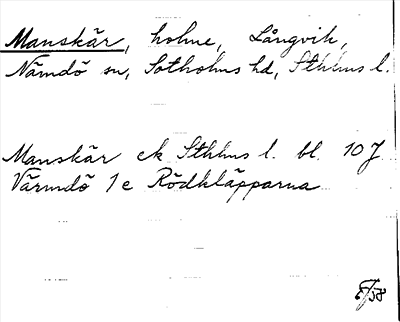 Manskär, holme, Långvik,
Nämdö sn, Sotholms hd, Sthlms l.
Manskär ek Sthlms l. bl. 107
Värmdö 1 e Rödkläpparna